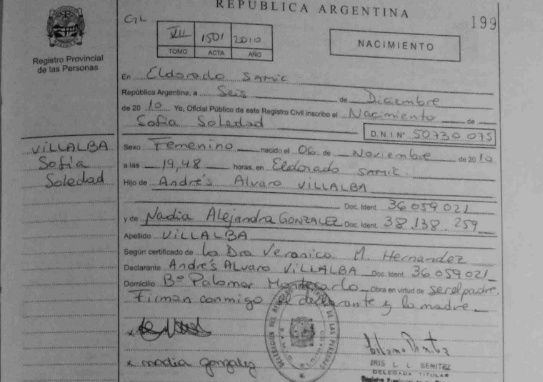 REPÚBLICA ARGENTINA
199
CIL
XII 1501 2010
TOMO ACTA AÑO
NACIMIENTO
Registro Provincial
de las Personas
En Eldorado SAMIC
República Argentina, a Seis de Diciembre
de 2010 Yo, Oficial Público de este Registro Civil inscribo el Nacimiento de
Sofia Soledad
D.N.I Nº 50730075
VILLALBA
Sofia
Soledad
Sexo Femenino nacido el 06 de Noviembre de 2010
a las 19,48 horas, en Eldorado SAMIC.
Hijo de Andrés Alvaro VILLALBA
Doc. Ident. 36059021
y de Nadia Alejandra GONZALEZ Doc. Ident. 38.138.259
Apellido VILLALBA
Según certificado de La Dra Veronica M. Hernandez
Declarante Andrés Alvaro VILLALBA Doc. Ident. 36059021
Domicilio Bº Palomar Montecarlo Obra en virtud de ser el padre
Firman conmigo el declarante y la madre
nadia gonzalez
L. L. BENITEZ
DELEGADA TITULAR